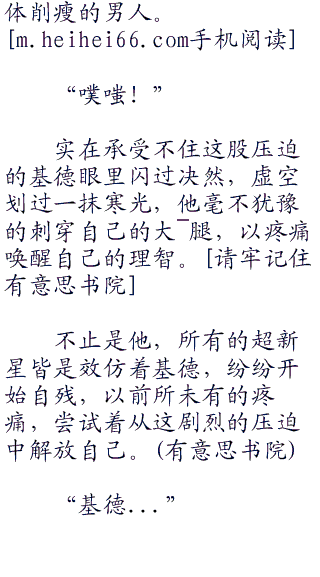 体削瘦的男人。
[m.heihei66.com手机阅读]
“噗嗤！”
实在承受不住这股压迫
的基德眼里闪过决然，虚空
划过一抹寒光，他毫不犹豫
的刺穿自己的大¯腿，以疼痛
唤醒自己的理智。[请牢记住
有意思书院]
不止是他，所有的超新
星皆是效仿着基德，纷纷开
始自残，以前所未有的疼
痛，尝试着从这剧烈的压迫
中解放自己。(有意思书院)
“基德...”